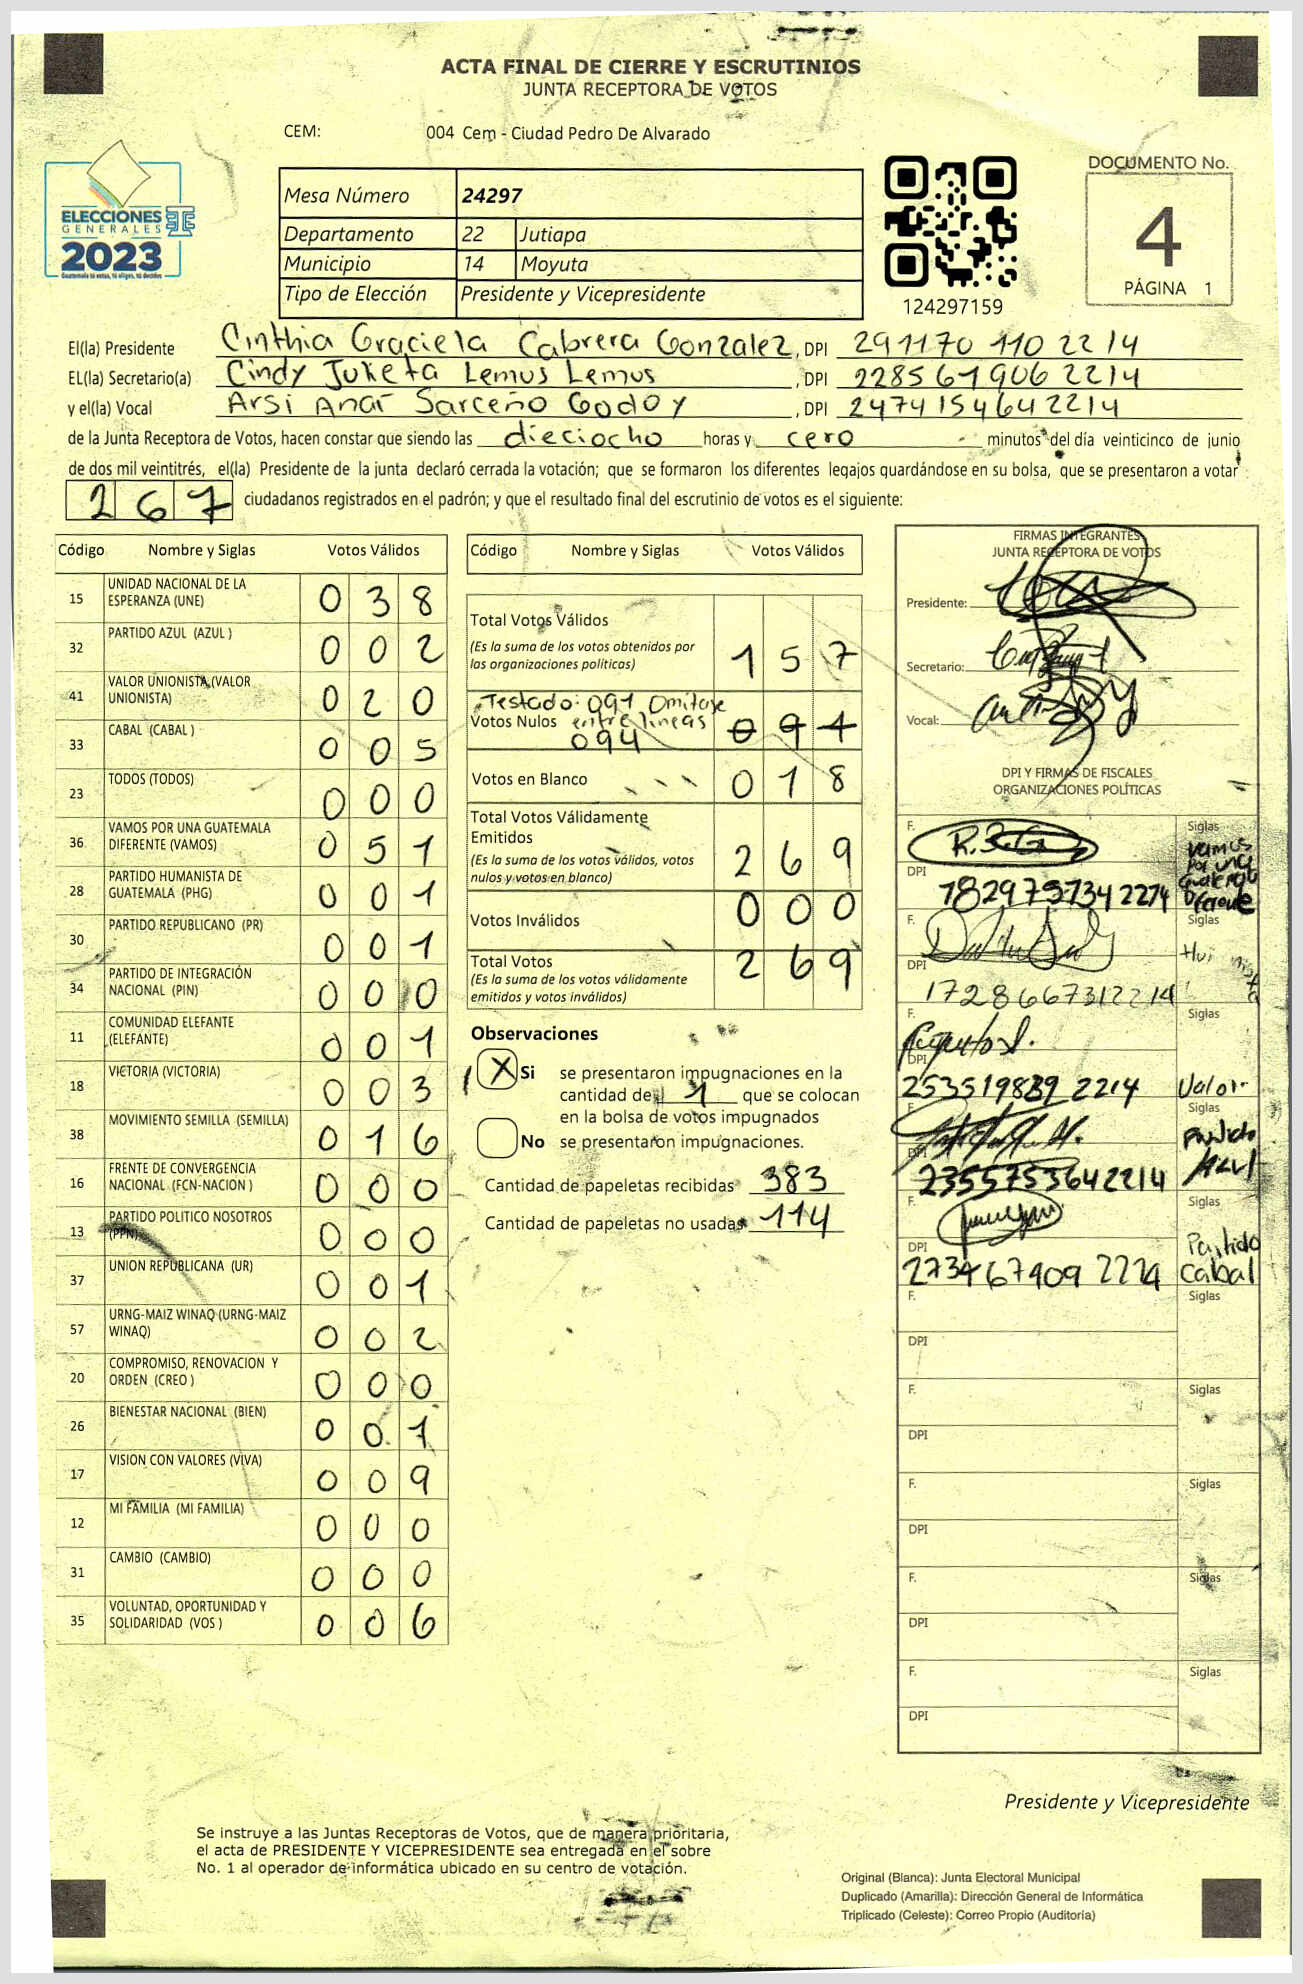 ACTA FINAL DE CIERRE Y ESCRUTINIOS
JUNTA RECEPTORA DE VOTOS
CEM: 004 Cem - Ciudad Pedro De Alvarado
ELECCIONES
GENERALES
2023
Guatemala tú votas, tú eliges, tú decides
Mesa Número 24297
Departamento 22 Jutiapa
Municipio 14 Moyuta
Tipo de Elección Presidente y Vicepresidente
124297159
DOCUMENTO No.
4
PÁGINA 1
El(la) Presidente Cinthia Graciela Cabrera Gonzalez, DPI 291170 110 2214
EL(la) Secretario(a) Cindy Julieta Lemus Lemus, DPI 228561906 2214
y el(la) Vocal Arsi Anai Sarceño Godoy, DPI 2474154642214
de la Junta Receptora de Votos, hacen constar que siendo las dieciocho horas y cero minutos del día veinticinco de junio
de dos mil veintitrés, el(la) Presidente de la junta declaró cerrada la votación; que se formaron los diferentes legajos quardándose en su bolsa, que se presentaron a votar
267 ciudadanos registrados en el padrón; y que el resultado final del escrutinio de votos es el siguiente:
Código Nombre y Siglas Votos Válidos
15 UNIDAD NACIONAL DE LA ESPERANZA (UNE) 038
32 PARTIDO AZUL (AZUL ) 002
41 VALOR UNIONISTA (VALOR UNIONISTA) 020
33 CABAL (CABAL ) 005
23 TODOS (TODOS) 000
36 VAMOS POR UNA GUATEMALA DIFERENTE (VAMOS) 051
28 PARTIDO HUMANISTA DE GUATEMALA (PHG) 001
30 PARTIDO REPUBLICANO (PR) 001
34 PARTIDO DE INTEGRACIÓN NACIONAL (PIN) 000
11 COMUNIDAD ELEFANTE (ELEFANTE) 001
18 VICTORIA (VICTORIA) 003
38 MOVIMIENTO SEMILLA (SEMILLA) 016
16 FRENTE DE CONVERGENCIA NACIONAL (FCN-NACION ) 000
13 PARTIDO POLITICO NOSOTROS (PPN) 000
37 UNION REPUBLICANA (UR) 001
57 URNG-MAIZ WINAQ (URNG-MAIZ WINAQ) 002
20 COMPROMISO, RENOVACION Y ORDEN (CREO ) 000
26 BIENESTAR NACIONAL (BIEN) 001
17 VISION CON VALORES (VIVA) 009
12 MI FAMILIA (MI FAMILIA) 000
31 CAMBIO (CAMBIO) 000
35 VOLUNTAD, OPORTUNIDAD Y SOLIDARIDAD (VOS ) 006
Código Nombre y Siglas Votos Válidos
Total Votos Válidos 157
(Es la suma de los votos obtenidos por
las organizaciones políticas)
Testado: 091 Omitase
Votos Nulos entre lineas 091
094
Votos en Blanco 018
Total Votos Válidamente
Emitidos 269
(Es la suma de los votos válidos, votos
nulos y votos en blanco)
Votos Inválidos 000
Total Votos 269
(Es la suma de los votos válidamente
emitidos y votos inválidos)
Observaciones
X Si se presentaron impugnaciones en la
cantidad de 1 que se colocan
en la bolsa de votos impugnados
No se presentaron impugnaciones.
Cantidad de papeletas recibidas 383
Cantidad de papeletas no usadas 114
FIRMAS INTEGRANTES
JUNTA RECEPTORA DE VOTOS
Presidente:
Secretario:
Vocal:
DPI Y FIRMAS DE FISCALES
ORGANIZACIONES POLÍTICAS
F. Siglas
Vamos por una Guatemala
DPI 1829757342214
F. Siglas
DPI 1728667312214
F. Siglas
DPI 253519839 2214 Valor
F. Siglas
Partido Azul
DPI 2355753642214
F. Siglas
Partido
DPI 273467909 2214 Cabal
F. Siglas
DPI
F. Siglas
DPI
F. Siglas
DPI
F. Siglas
DPI
F. Siglas
DPI
Presidente y Vicepresidente
Se instruye a las Juntas Receptoras de Votos, que de manera prioritaria,
el acta de PRESIDENTE Y VICEPRESIDENTE sea entregada en el sobre
No. 1 al operador de informática ubicado en su centro de votación.
Original (Blanca): Junta Electoral Municipal
Duplicado (Amarilla): Dirección General de Informática
Triplicado (Celeste): Correo Propio (Auditoría)